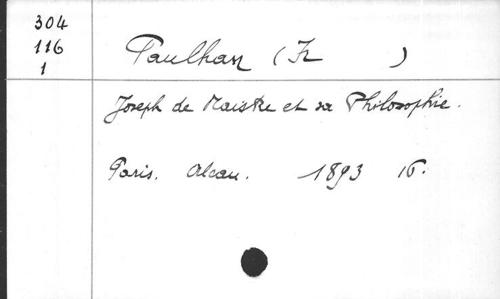 304
116
1
Paulhan (Fr )
Joseph de Maistre et sa Philosophie.
Paris. Alcan. 1893 16.